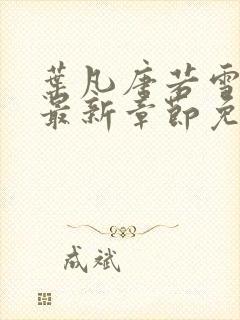 葉凡唐若雪
最新章節免
成斌